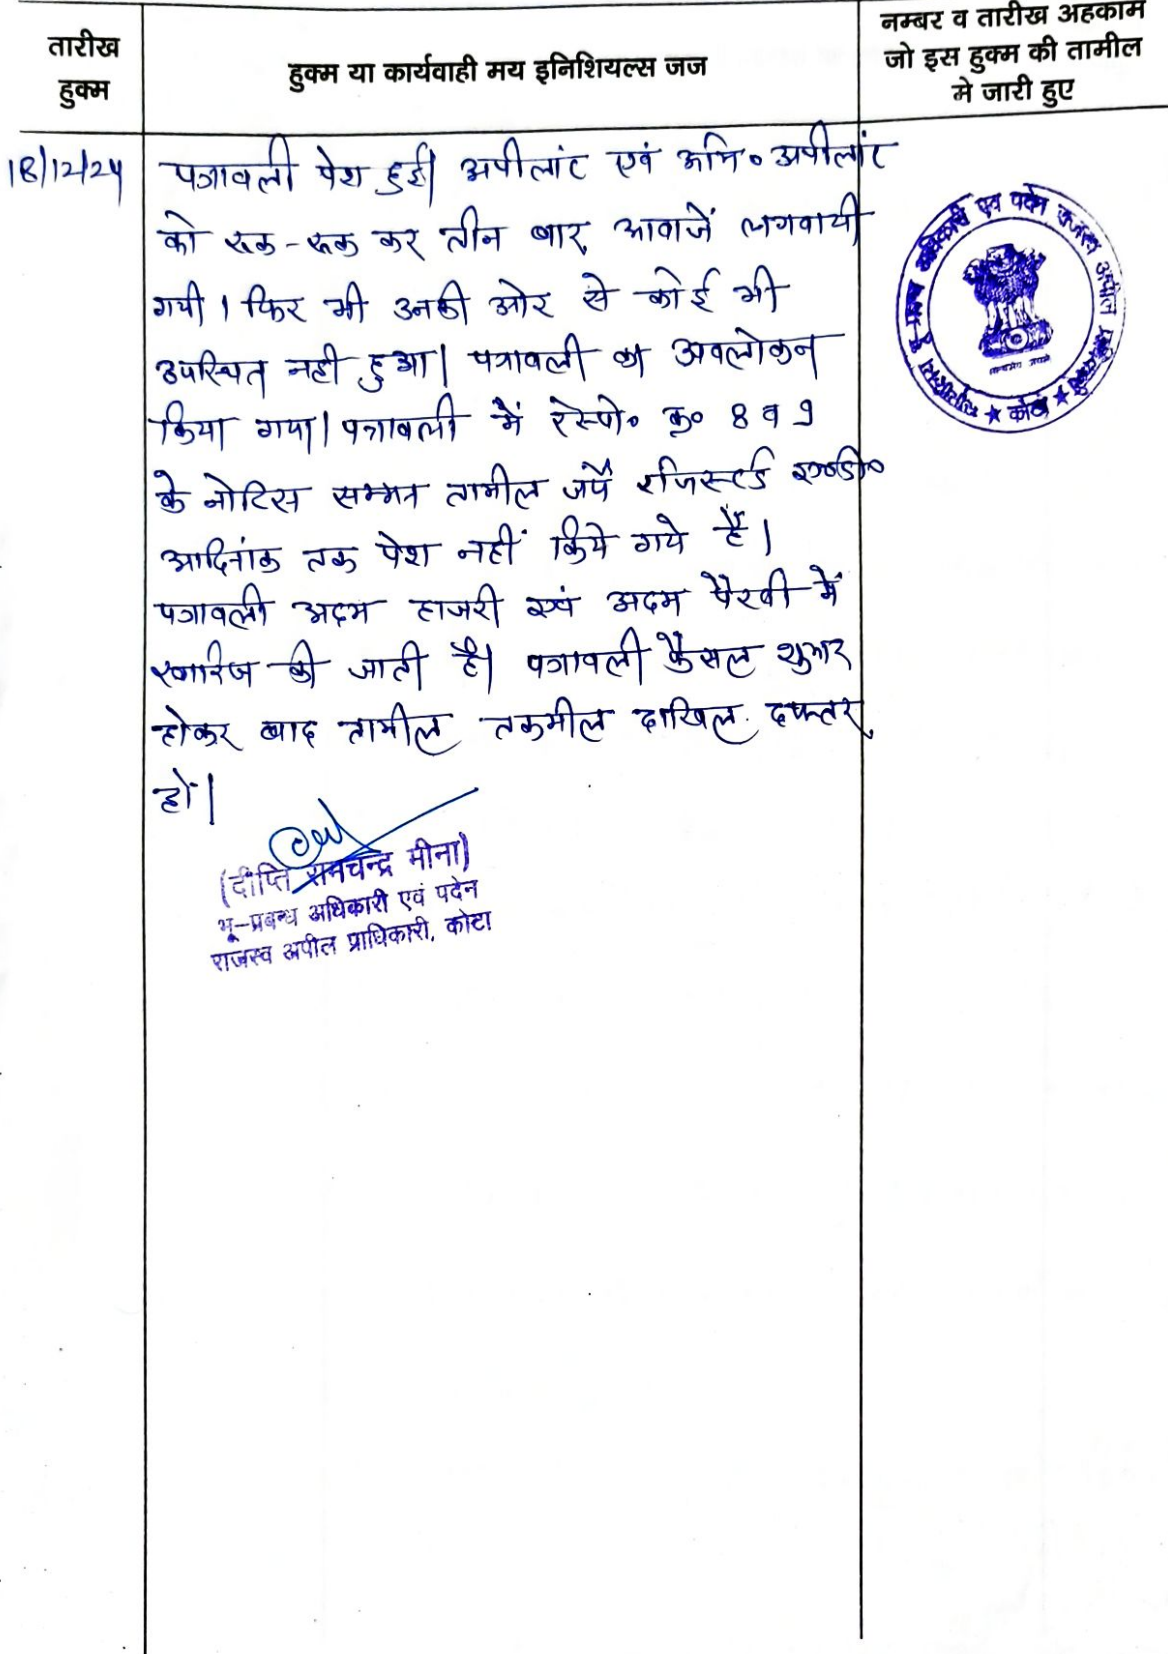 तारीख
हुक्म
हुक्म या कार्यवाही मय इनिशियल्स जज
नम्बर व तारीख अहकाम
जो इस हुक्म की तामील
मे जारी हुए
18/12/24
पत्रावली पेश हुई। अपीलांट एवं अभि० अपीलांट
को रूक-रूक कर तीन बार आवाजें लगवायी
गयी। फिर भी उनकी ओर से कोई भी
उपस्थित नही हुआ। पत्रावली का अवलोकन
किया गया। पत्रावली में रेस्पो० क्र० 8 व 9
के नोटिस सम्मन तामील जर्ये रजिस्टर्ड ए०डी०
आदिनांक तक पेश नहीं किये गये हैं।
पत्रावली अदम हाजरी एवं अदम पैरवी में
खारिज की जाती है। पत्रावली फैसल शुमार
होकर बाद तामील तकमील दाखिल दफ्तर
हो।
(दीप्ति रामचन्द्र मीना)
भू-प्रबन्ध अधिकारी एवं पदेन
राजस्व अपील प्राधिकारी, कोटा
अधिकारी एवं पदेन राजस्व अपील
★ कोटा ★